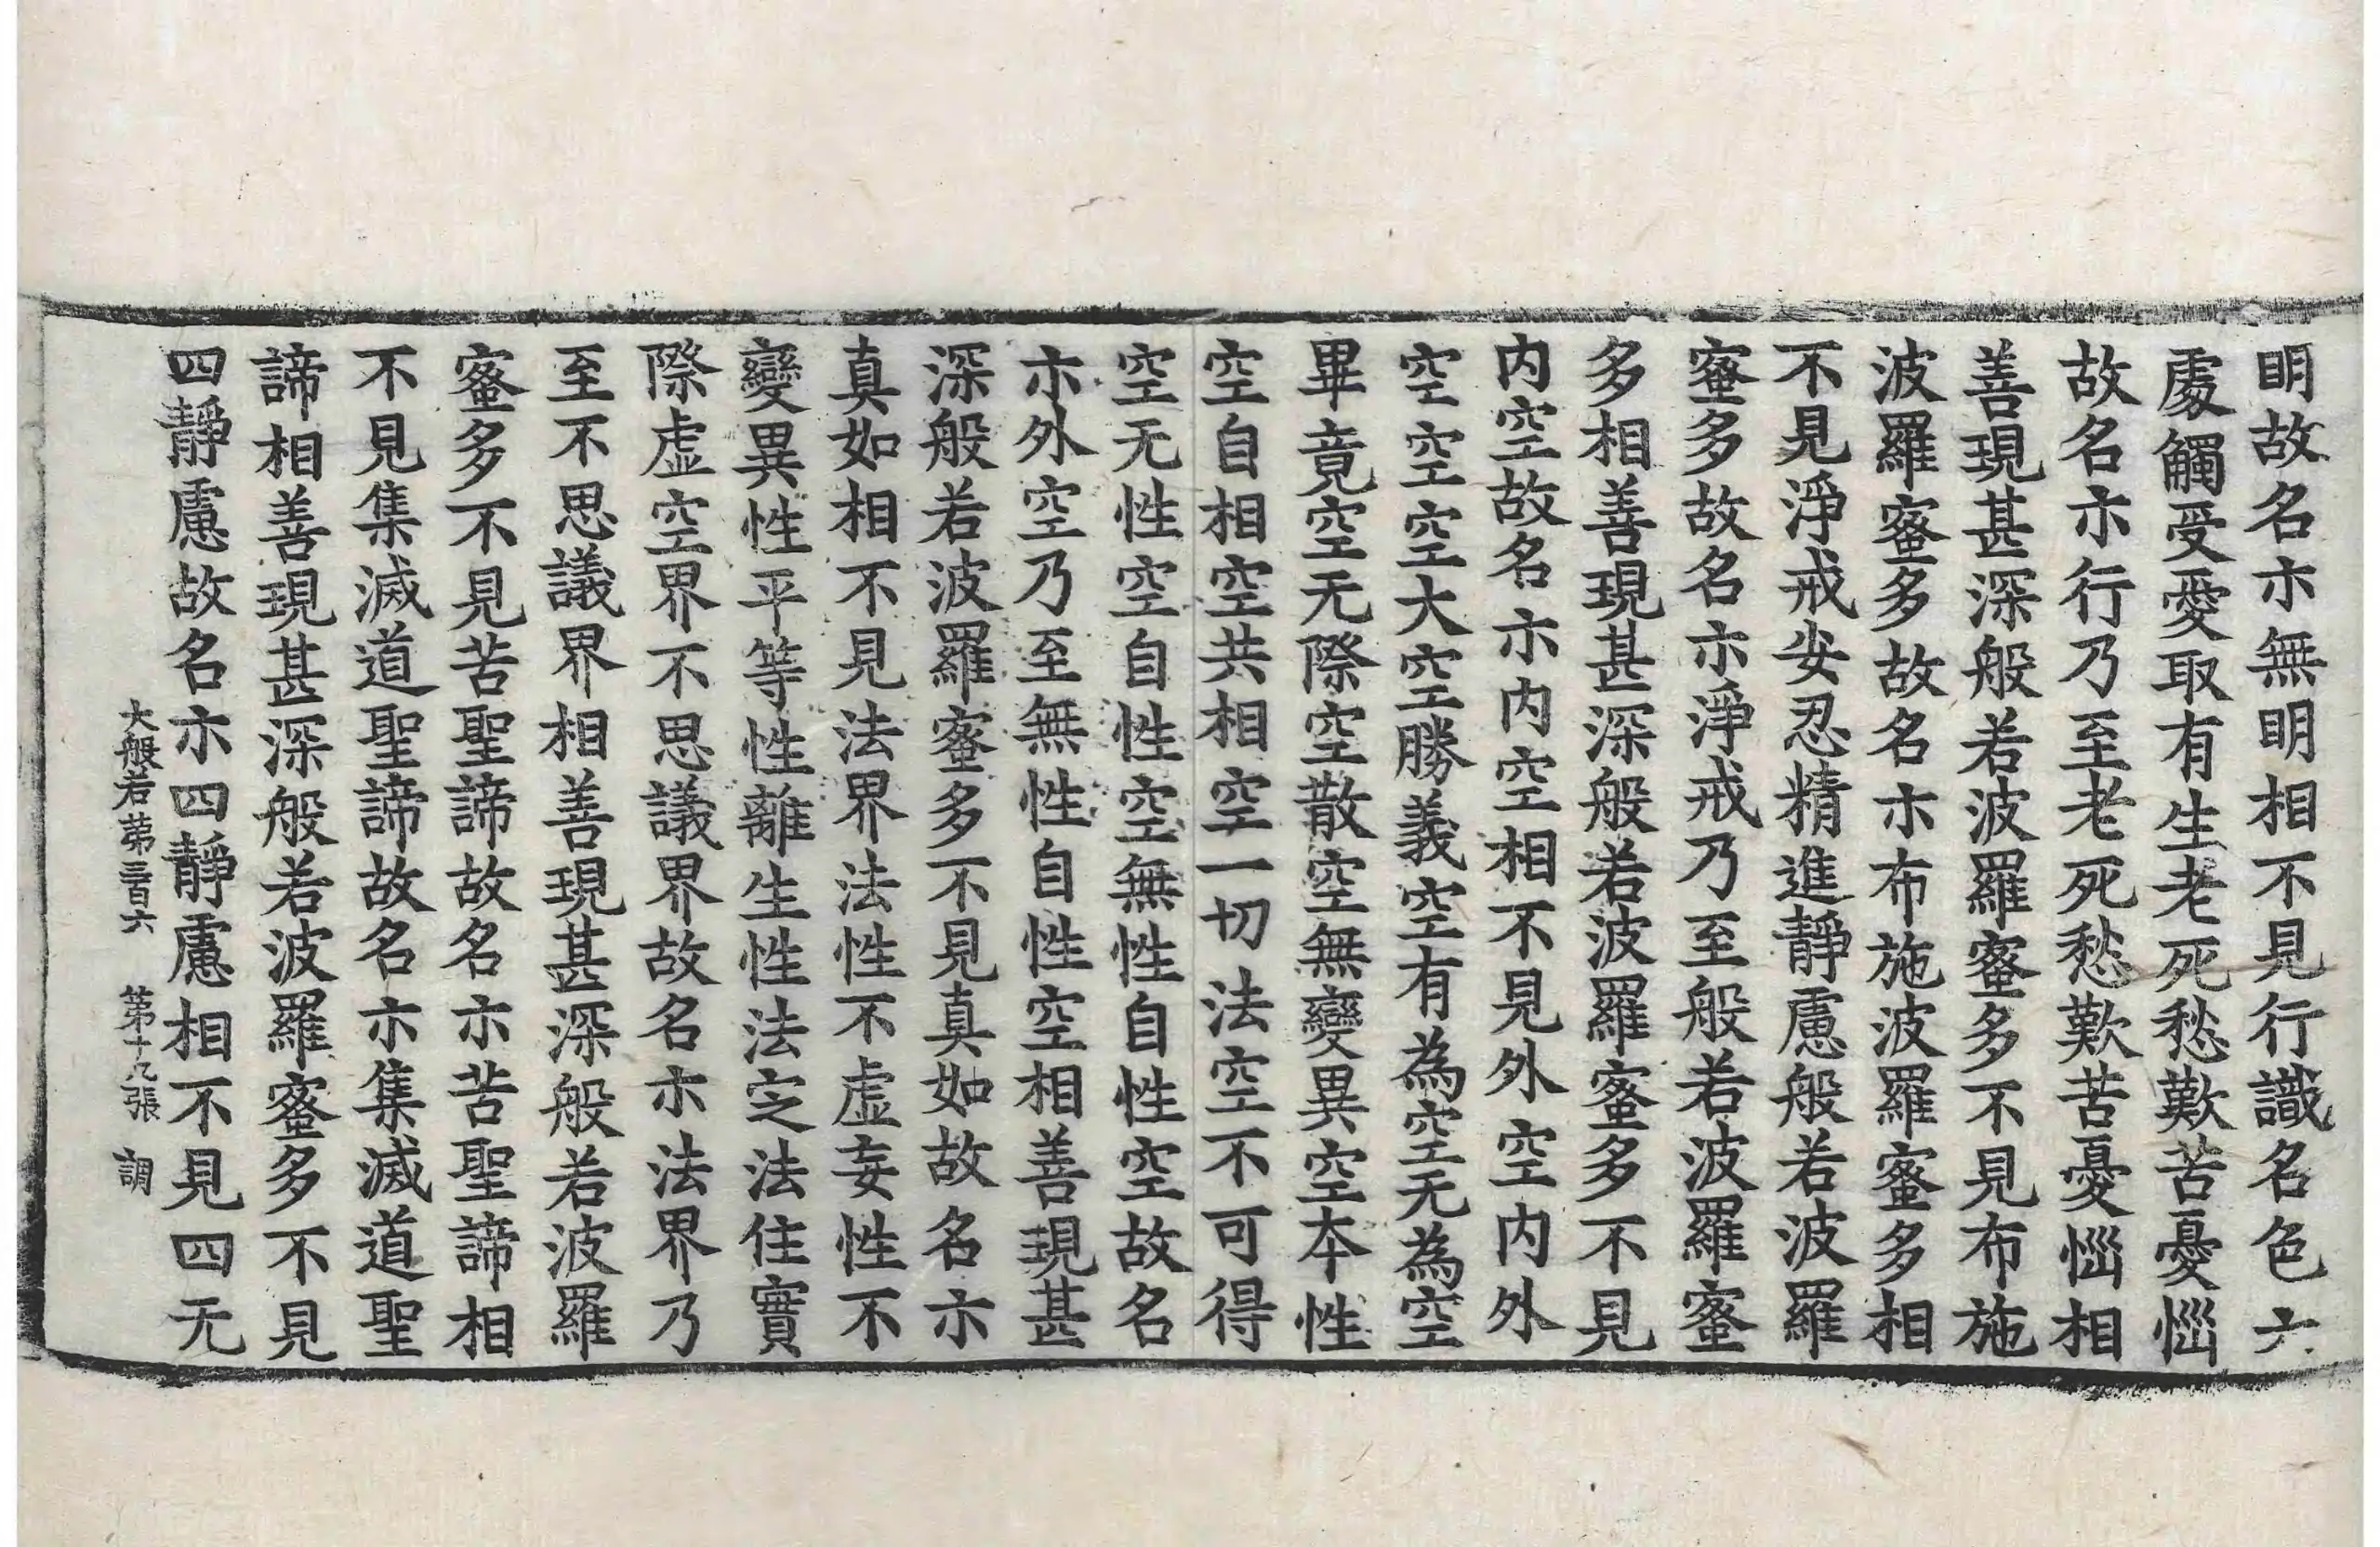 明故名示無明相不見行識名色六
處觸受愛取有生老死愁歎苦憂惱
故名示行乃至老死愁歎苦憂惱相
善現甚深般若波羅蜜多不見布施
波羅蜜多故名示布施波羅蜜多相
不見淨戒安忍精進靜慮般若波羅
蜜多故名示淨戒乃至般若波羅蜜
多相善現甚深般若波羅蜜多不見
内空故名示内空相不見外空内外
空空空大空勝義空有為空无為空
畢竟空无際空散空無變異空本性
空自相空共相空一切法空不可得
空无性空自性空無性自性空故名
示外空乃至無性自性空相善現甚
深般若波羅蜜多不見真如故名示
真如相不見法界法性不虛妄性不
變異性平等性離生性法定法住實
際虛空界不思議界故名示法界乃
至不思議界相善現甚深般若波羅
蜜多不見苦聖諦故名示苦聖諦相
不見集滅道聖諦故名示集滅道聖
諦相善現甚深般若波羅蜜多不見
四靜慮故名示四靜慮相不見四无
大般若第三百六 第十九張 調